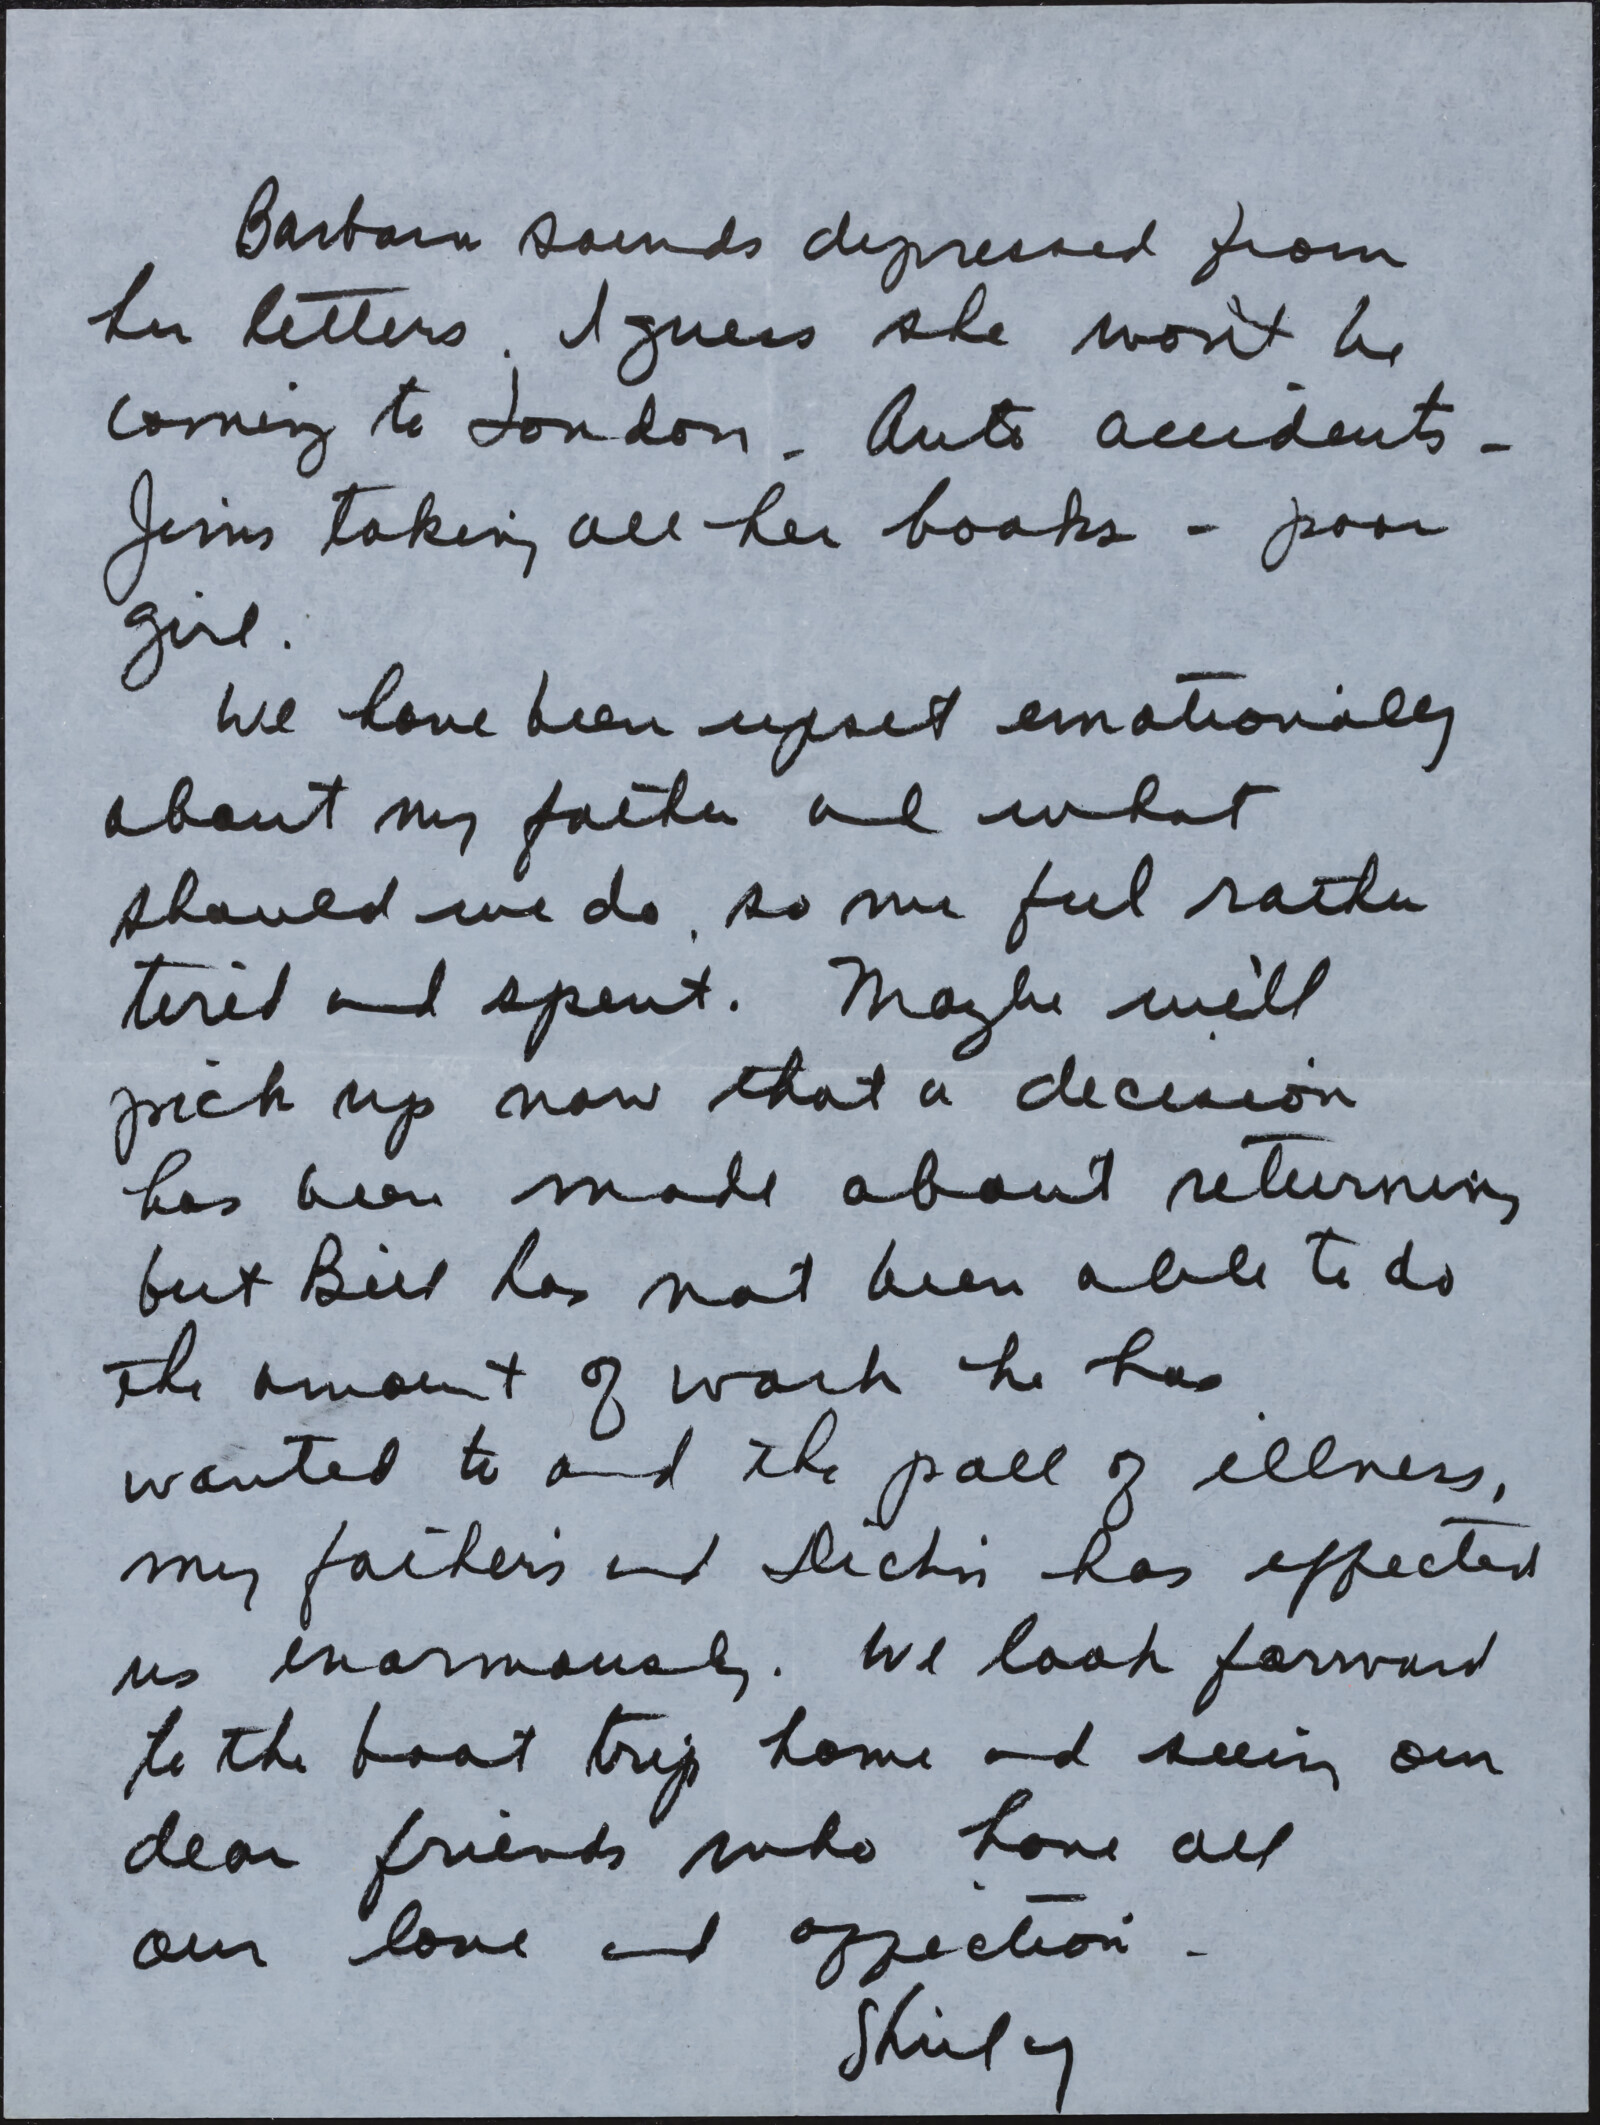 Barbara sounds depressed from
her letters. I guess she won't be
coming to London - Auto accidents -
Jim's taking all her books - poor
girl.
We have been upset emotionally
about my father and what
should we do, so we feel rather
tired and spent. Maybe we'll
pick up now that a decision
has been made about returning
but Bill has not been able to do
the amount of work he has
wanted to and the pall of illness,
my father's and has effected
us enormously. We look forward
to the boat trip home and seeing our
dear friends who have all
our love and affection -
Shirley